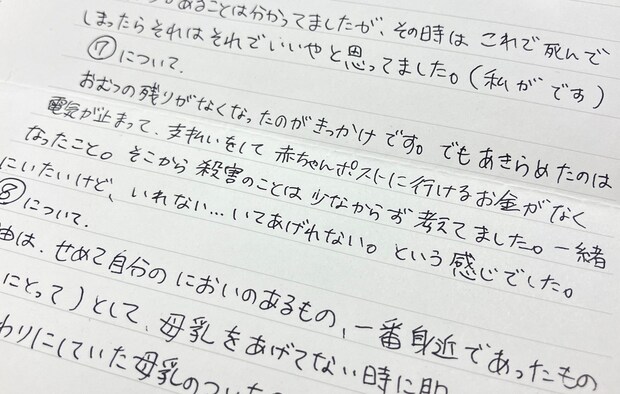 。あることは分かってましたが、その時は これで 死んで
しまったらそれは それで いいや と 思ってました。(私が です)
⑦について.
おむつの残りがなくなったのが きっかけ です。でも あきらめたのは
電気が止まって、支払いをして 赤ちゃんポストに 行ける お金がなく
なったこと。そこから 殺害のことは 少なからず 考えて ました。一緒
にいたいけど、いれない… いてあげれない。という 感じでした。
⑧について.
由は、せめて自分の においのあるもの、一番 身近であったもの
にとって)として、母乳をあげてない 時に
わりにしていた 母乳のついた